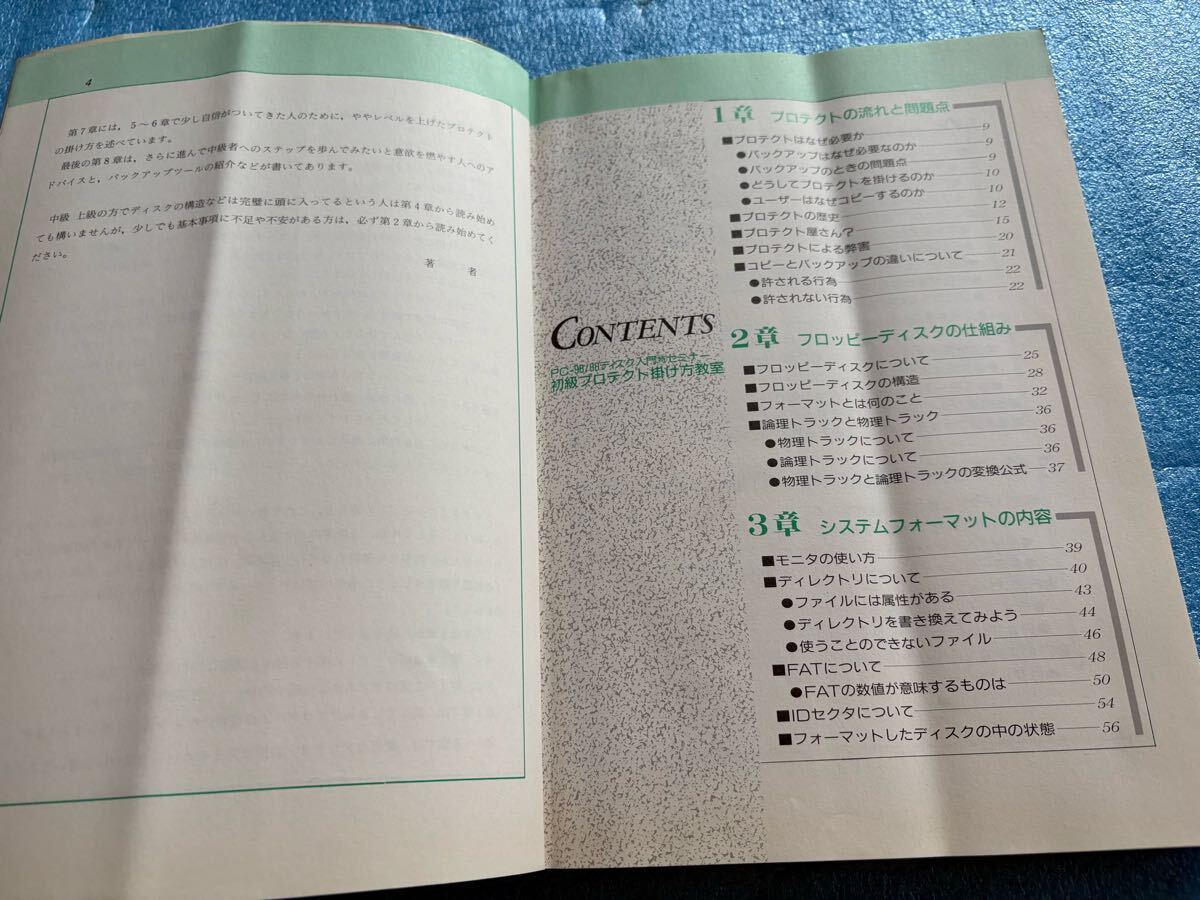 4
第7章には，5～6章で少し自信がついてきた人のために，ややレベルを上げたプロテクト
の掛け方を述べています。
最後の第8章は，さらに進んで中級者へのステップを歩んでみたいと意欲を燃やす人へのア
ドバイスと，バックアップツールの紹介などが書いてあります。
中級 上級の方でディスクの構造などは完璧に頭に入ってるという人は第4章から読み始め
ても構いませんが，少しでも基本事項に不足や不安がある方は，必ず第2章から読み始めてく
ださい。
著 者
CONTENTS
PC-98/88ディスク入門セミナー
初級プロテクト掛け方教室
1章 プロテクトの流れと問題点
■プロテクトはなぜ必要か 9
●バックアップはなぜ必要なのか 9
●バックアップのときの問題点 9
●どうしてプロテクトを掛けるのか 10
●ユーザーはなぜコピーするのか 10
■プロテクトの歴史 12
■プロテクト屋さん? 15
■プロテクトによる弊害 20
■コピーとバックアップの違いについて 21
●許される行為 22
●許されない行為 22
2章 フロッピーディスクの仕組み
■フロッピーディスクについて 25
■フロッピーディスクの構造 28
■フォーマットとは何のこと 32
■論理トラックと物理トラック 36
●物理トラックについて 36
●論理トラックについて 36
●物理トラックと論理トラックの変換公式 37
3章 システムフォーマットの内容
■モニタの使い方 39
■ディレクトリについて 40
●ファイルには属性がある 43
●ディレクトリを書き換えてみよう 44
●使うことのできないファイル 46
■FATについて 48
●FATの数値が意味するものは 50
■IDセクタについて 54
■フォーマットしたディスクの中の状態 56